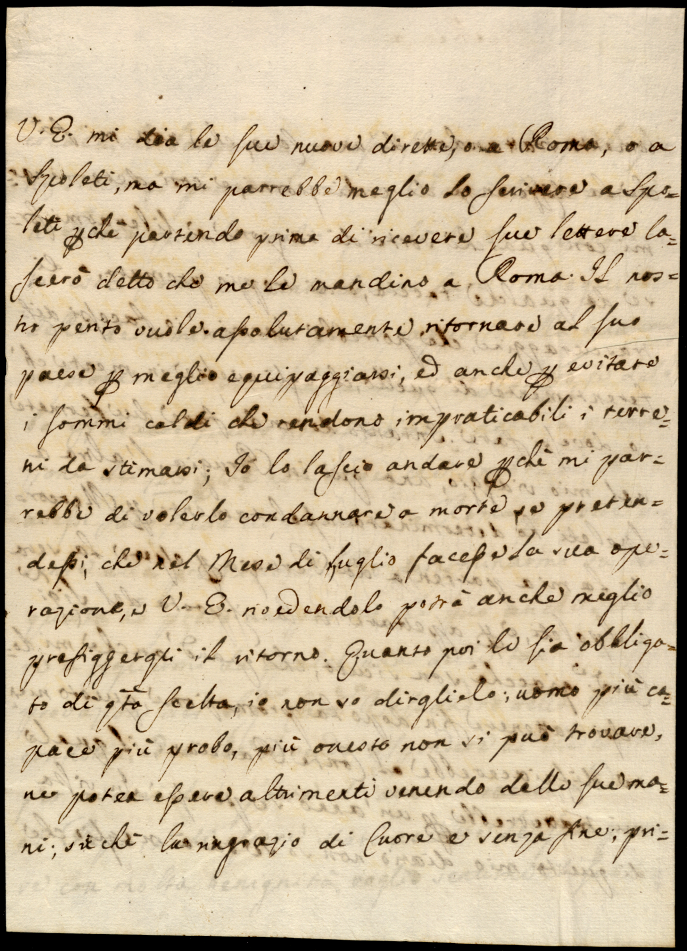 V. E. mi dia le sue nuove dirette, o a Roma, o a
Spoleti, ma mi parrebbe meglio lo scrivere a Spo=
leti pchè partendo prima di ricevere sue lettere la=
scerò detto che me le mandino a Roma. Il nos=
tro perito vuole assolutamente ritornare al suo
paese p meglio equipaggiarsi, ed anche p evitare
i sommi caldi che rendono impraticabili i terre=
ni da stimarsi; Io lo lascio andare pchè mi par=
rebbe di volerlo condannare a morte, se preten=
dessi, che nel Mese di Luglio facesse la sua ope=
razione, e V. E. rivedendolo potrà anche meglio
prefiggergli il ritorno. Quanto poi le sia obbliga=
to di qta scelta, io non so dirglielo; uomo più ca=
pace più probo, più onesto non si può trovare,
ne potea essere altrimenti venendo dalle sue ma=
ni; sichè la ringrazio di Cuore e senza fine; pri=